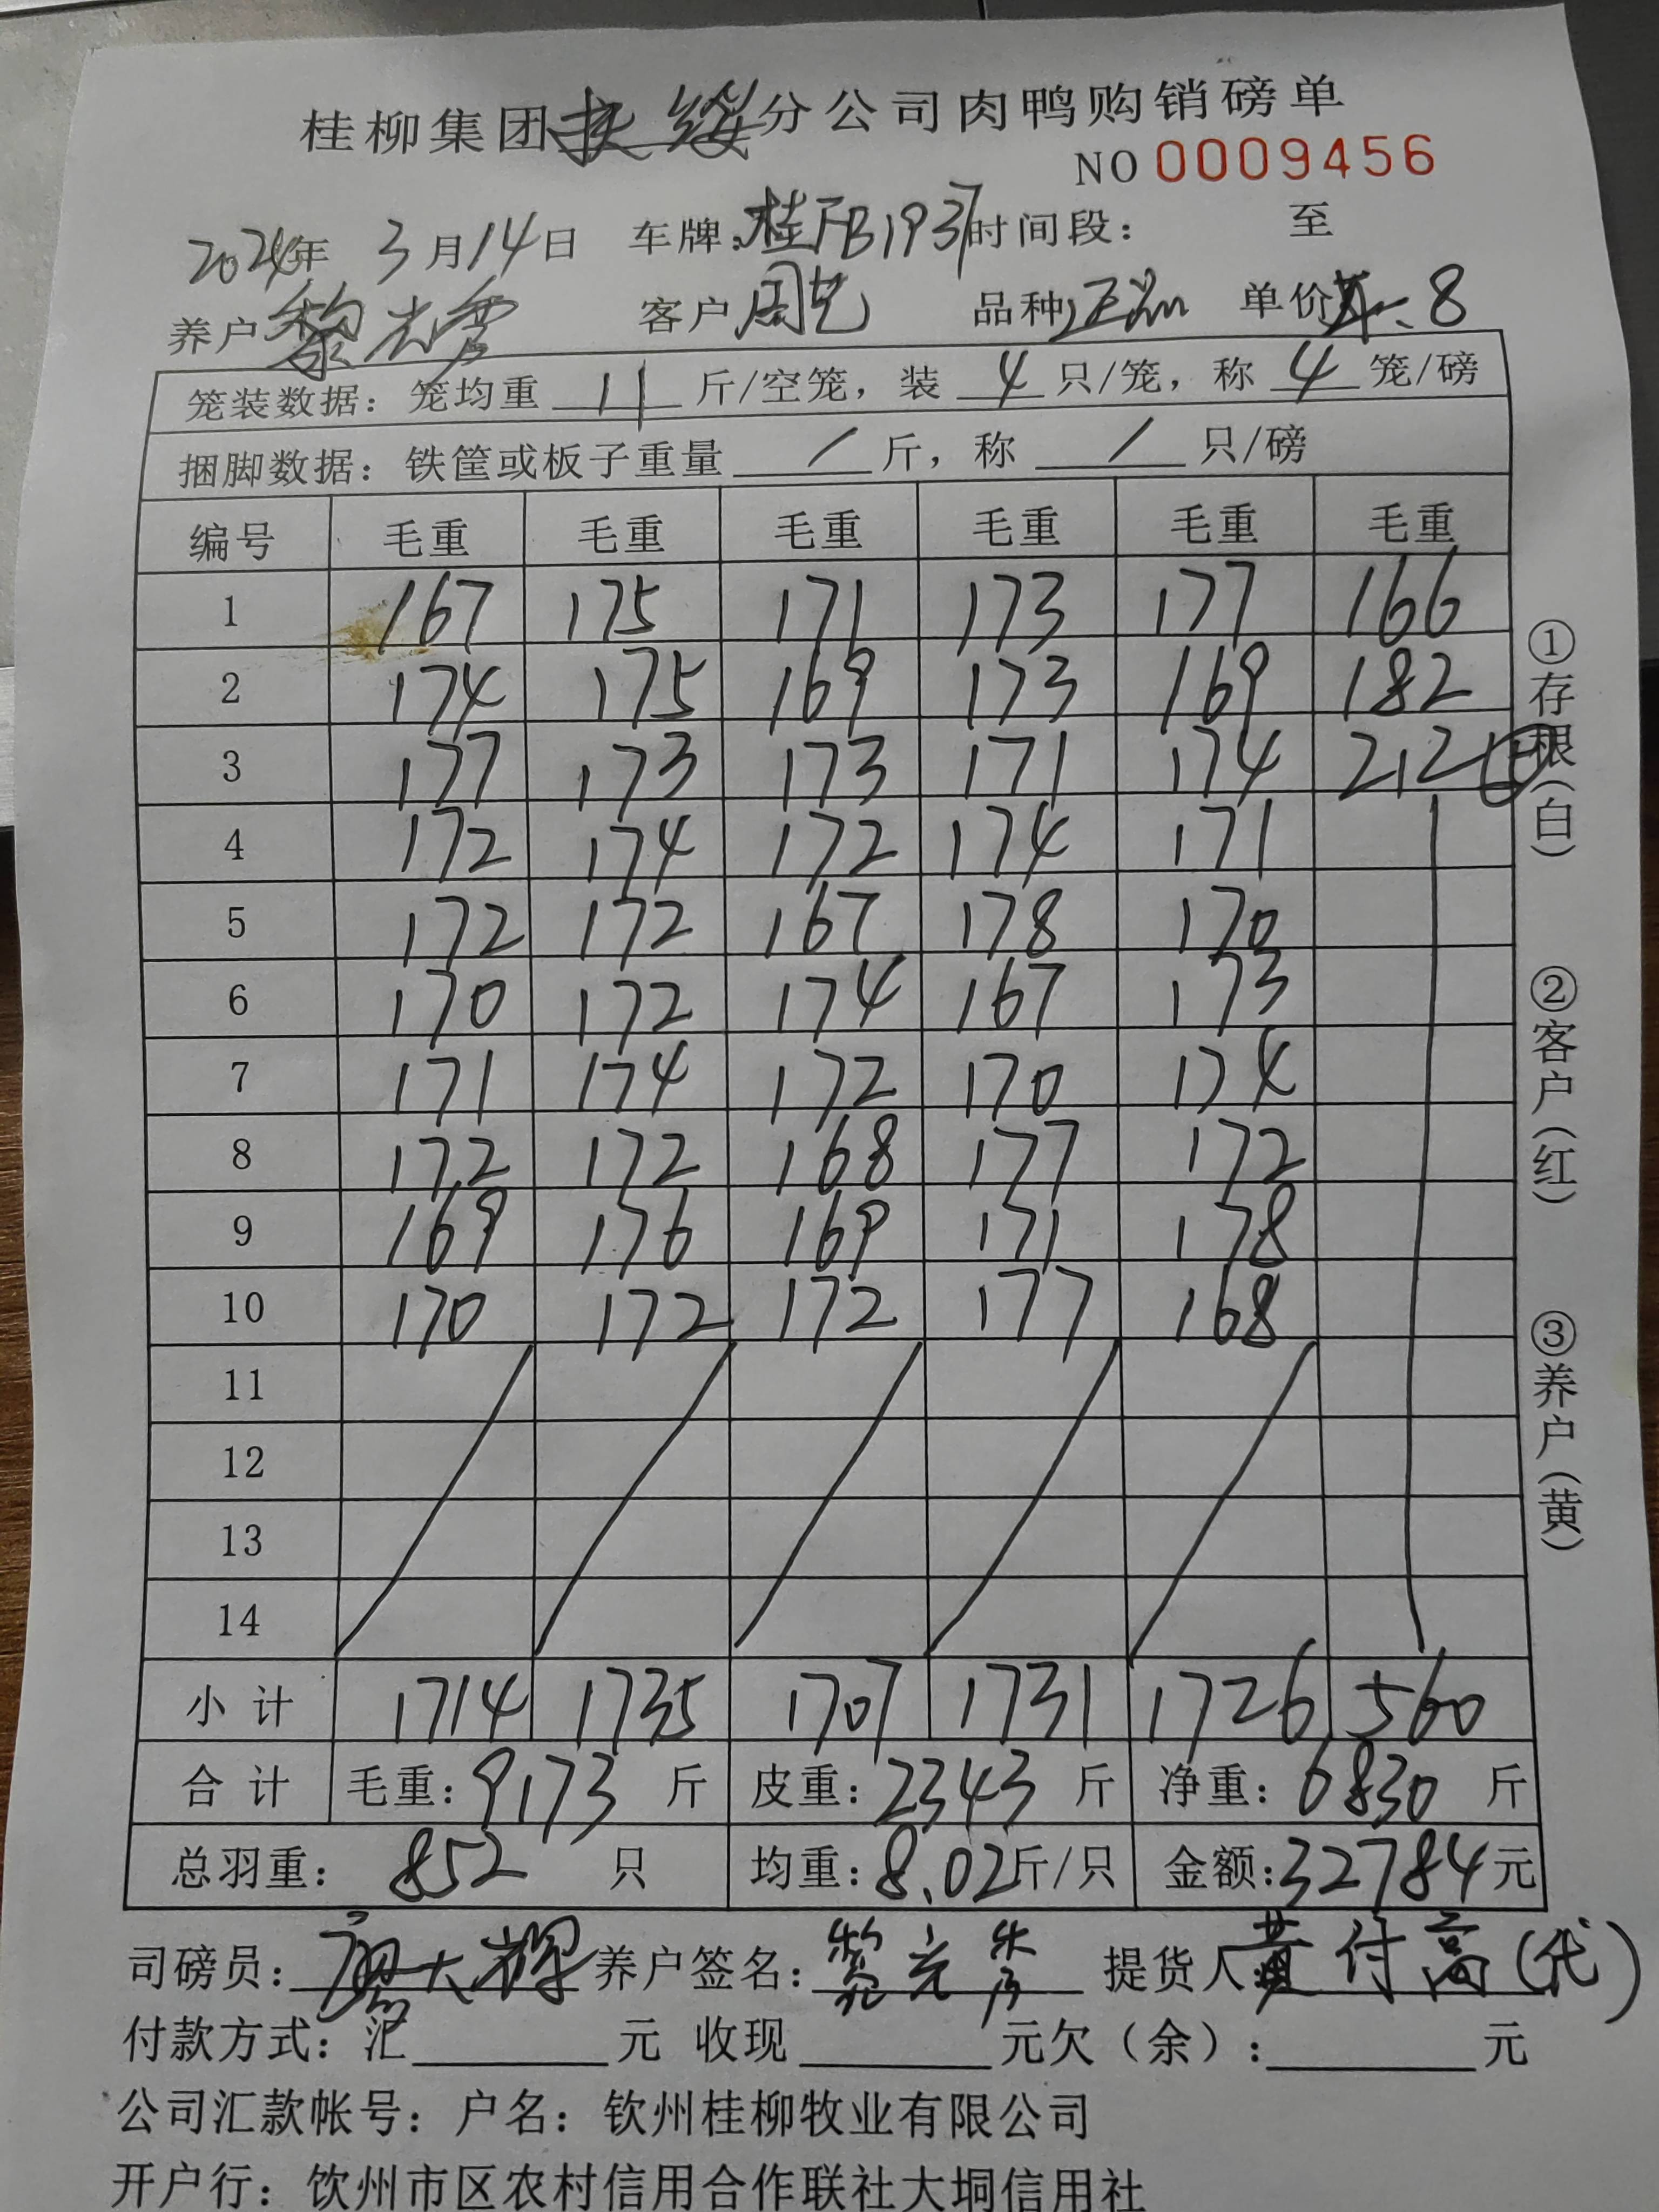 桂柳集团扶绥分公司肉鸭购销磅单
NO 0009456
2024年 3月14日 车牌:桂FB1937时间段: 至
养户 黎 客户 周艺 品种 正品 单价 .8
笼装数据:笼均重 11 斤/空笼,装 4 只/笼,称 4 笼/磅
捆脚数据:铁筐或板子重量 / 斤,称 / 只/磅
编号 毛重 毛重 毛重 毛重 毛重 毛重
1 167 175 171 173 177 166
2 174 175 169 173 169 182
3 177 173 173 171 174 212
4 172 174 172 174 171
5 172 172 167 178 170
6 170 172 174 167 173
7 171 174 172 170 174
8 172 172 168 177 172
9 169 176 169 171 178
10 170 172 172 177 168
11
12
13
14
小计 1714 1735 1707 1731 1726 560
合计 毛重:9173 斤 皮重:2343 斤 净重:6830 斤
总羽重: 852 只 均重:8.02斤/只 金额:32784元
司磅员:廖大辉 养户签名:黎 提货人 黄付高(代)
付款方式:汇 元 收现 元欠(余): 元
公司汇款帐号:户名:钦州桂柳牧业有限公司
开户行:钦州市区农村信用合作联社大垌信用社
①存根(白)
②客户(红)
③养户(黄)